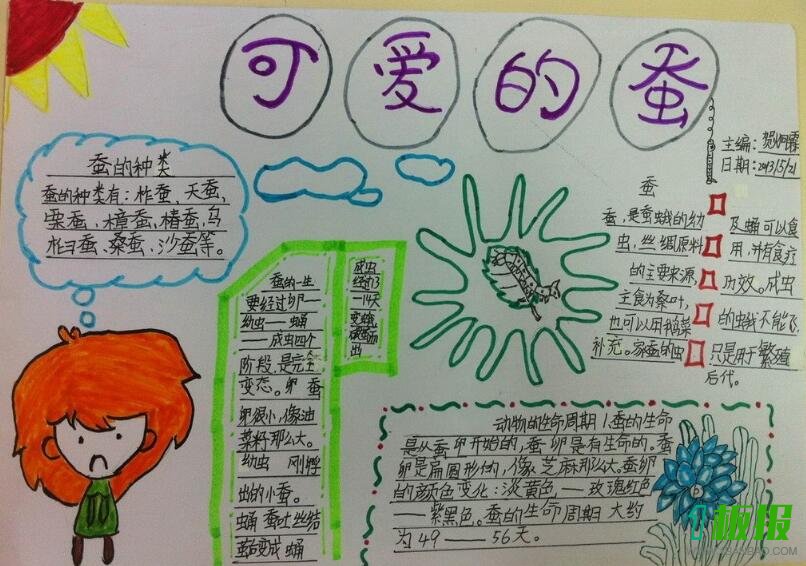 可爱的蚕
主编:贺
日期:2013/5/21
蚕的种类
蚕的种类有:柞蚕、天蚕、
栗蚕、樟蚕、椿蚕、乌
桕蚕、桑蚕、沙蚕等。
蚕的一生
要经过卵—
幼虫——蛹
——成虫四个
阶段,是完全
变态。卵 蚕
卵很小,像油
菜籽那么大。
幼虫 刚孵
出的小蚕。
蛹 蚕吐丝结
茧变成蛹
成虫
经过13
—14天
变蛾,
破茧而
出
蚕
蚕,是蚕蛾的幼
虫,丝绸原料
的主要来源,
主食为桑叶,
也可以用莴菜
补充。家蚕的虫
及蛹可以食
用,并有食疗
功效。成虫
的虫蛾不能飞,
只是用于繁殖
后代。
动物的生命周期1.蚕的生命
是从蚕卵开始的,蚕卵是有生命的。蚕
卵是扁圆形的,像芝麻那么大。蚕卵
的颜色变化:淡黄色——玫瑰红色
——紫黑色。蚕的生命周期大约
为49——56天。
板报